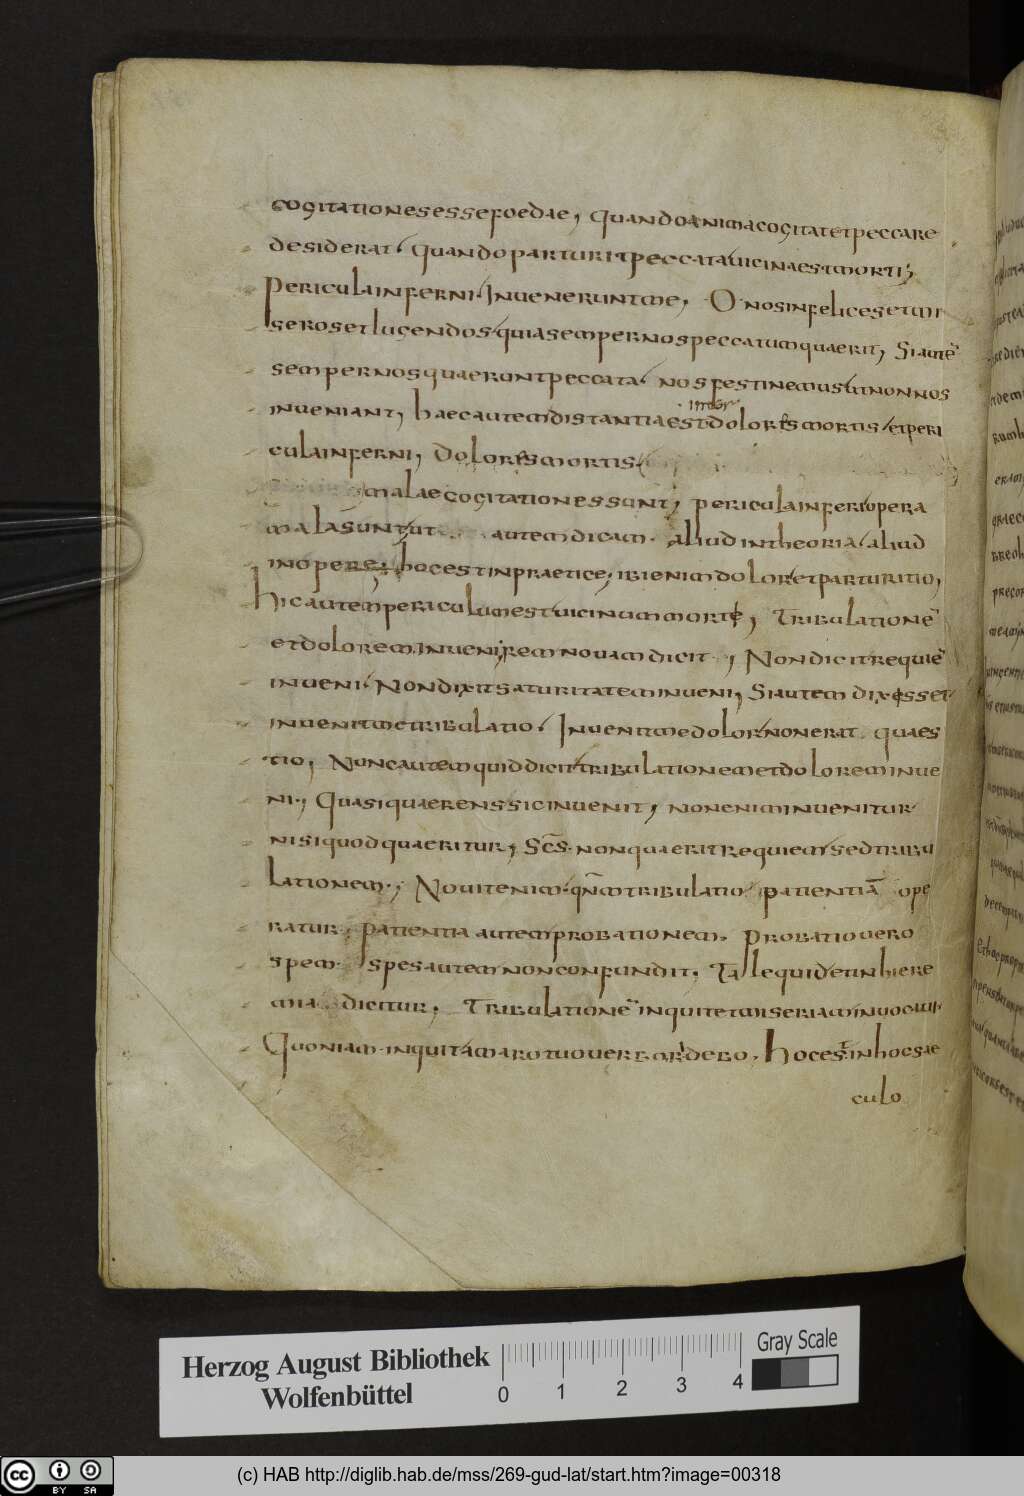 cogitationes esse foedae, quando anima cogitat et peccare
desiderat. quando parturit peccata uicina est morti;
Pericula inferni. Inuenerunt me, O nos infelices et mi
seros et lugendos quia semper nos peccatum quaerit, Si autē
semper nos quaerunt peccata. nos festinemus ut non nos
inter
inueniant, haec autem distantia est dolores mortis et peri
cula inferni, Dolores mortis
malae cogitationes sunt; pericula inferi opera
mala sunt, ut autem dicam. aliud in theoria. aliud
in opere; hoc est in praetice; ibi enim dolor et parturitio,
hic autem periculum est uicinum morti, Tribulationē
et dolorem inueni; rem nouam dicit, Non dicit requiē
inueni. Non dixit saturitatem inueni, Si autem dixisset
inuenit me tribulatio. Inuenit me dolor, non erat quaes
tio, Nunc autem quid dicit tribulationem et dolorem inue
ni., Quasi quaerens sic inuenit, non enim inuenitur
nisi quod quaeritur, Sc̄s non quaerit requiem sed tribu
lationem., Nouit enim qn̄m tribulatio patientiā ope
ratur, patientia autem probationem, probatio uero
spem. spes autem non confundit, Tale quid et in hiere
mia dicitur, Tribulationē inquit et miseriam inuocaui.
Quoniam inquit amaro tuo uerbo ridebo, hoc est in hoc sae
culo
Herzog August Bibliothek
Wolfenbüttel
0 1 2 3 4
Gray Scale
cc BY SA
(c) HAB http://diglib.hab.de/mss/269-gud-lat/start.htm?image=00318